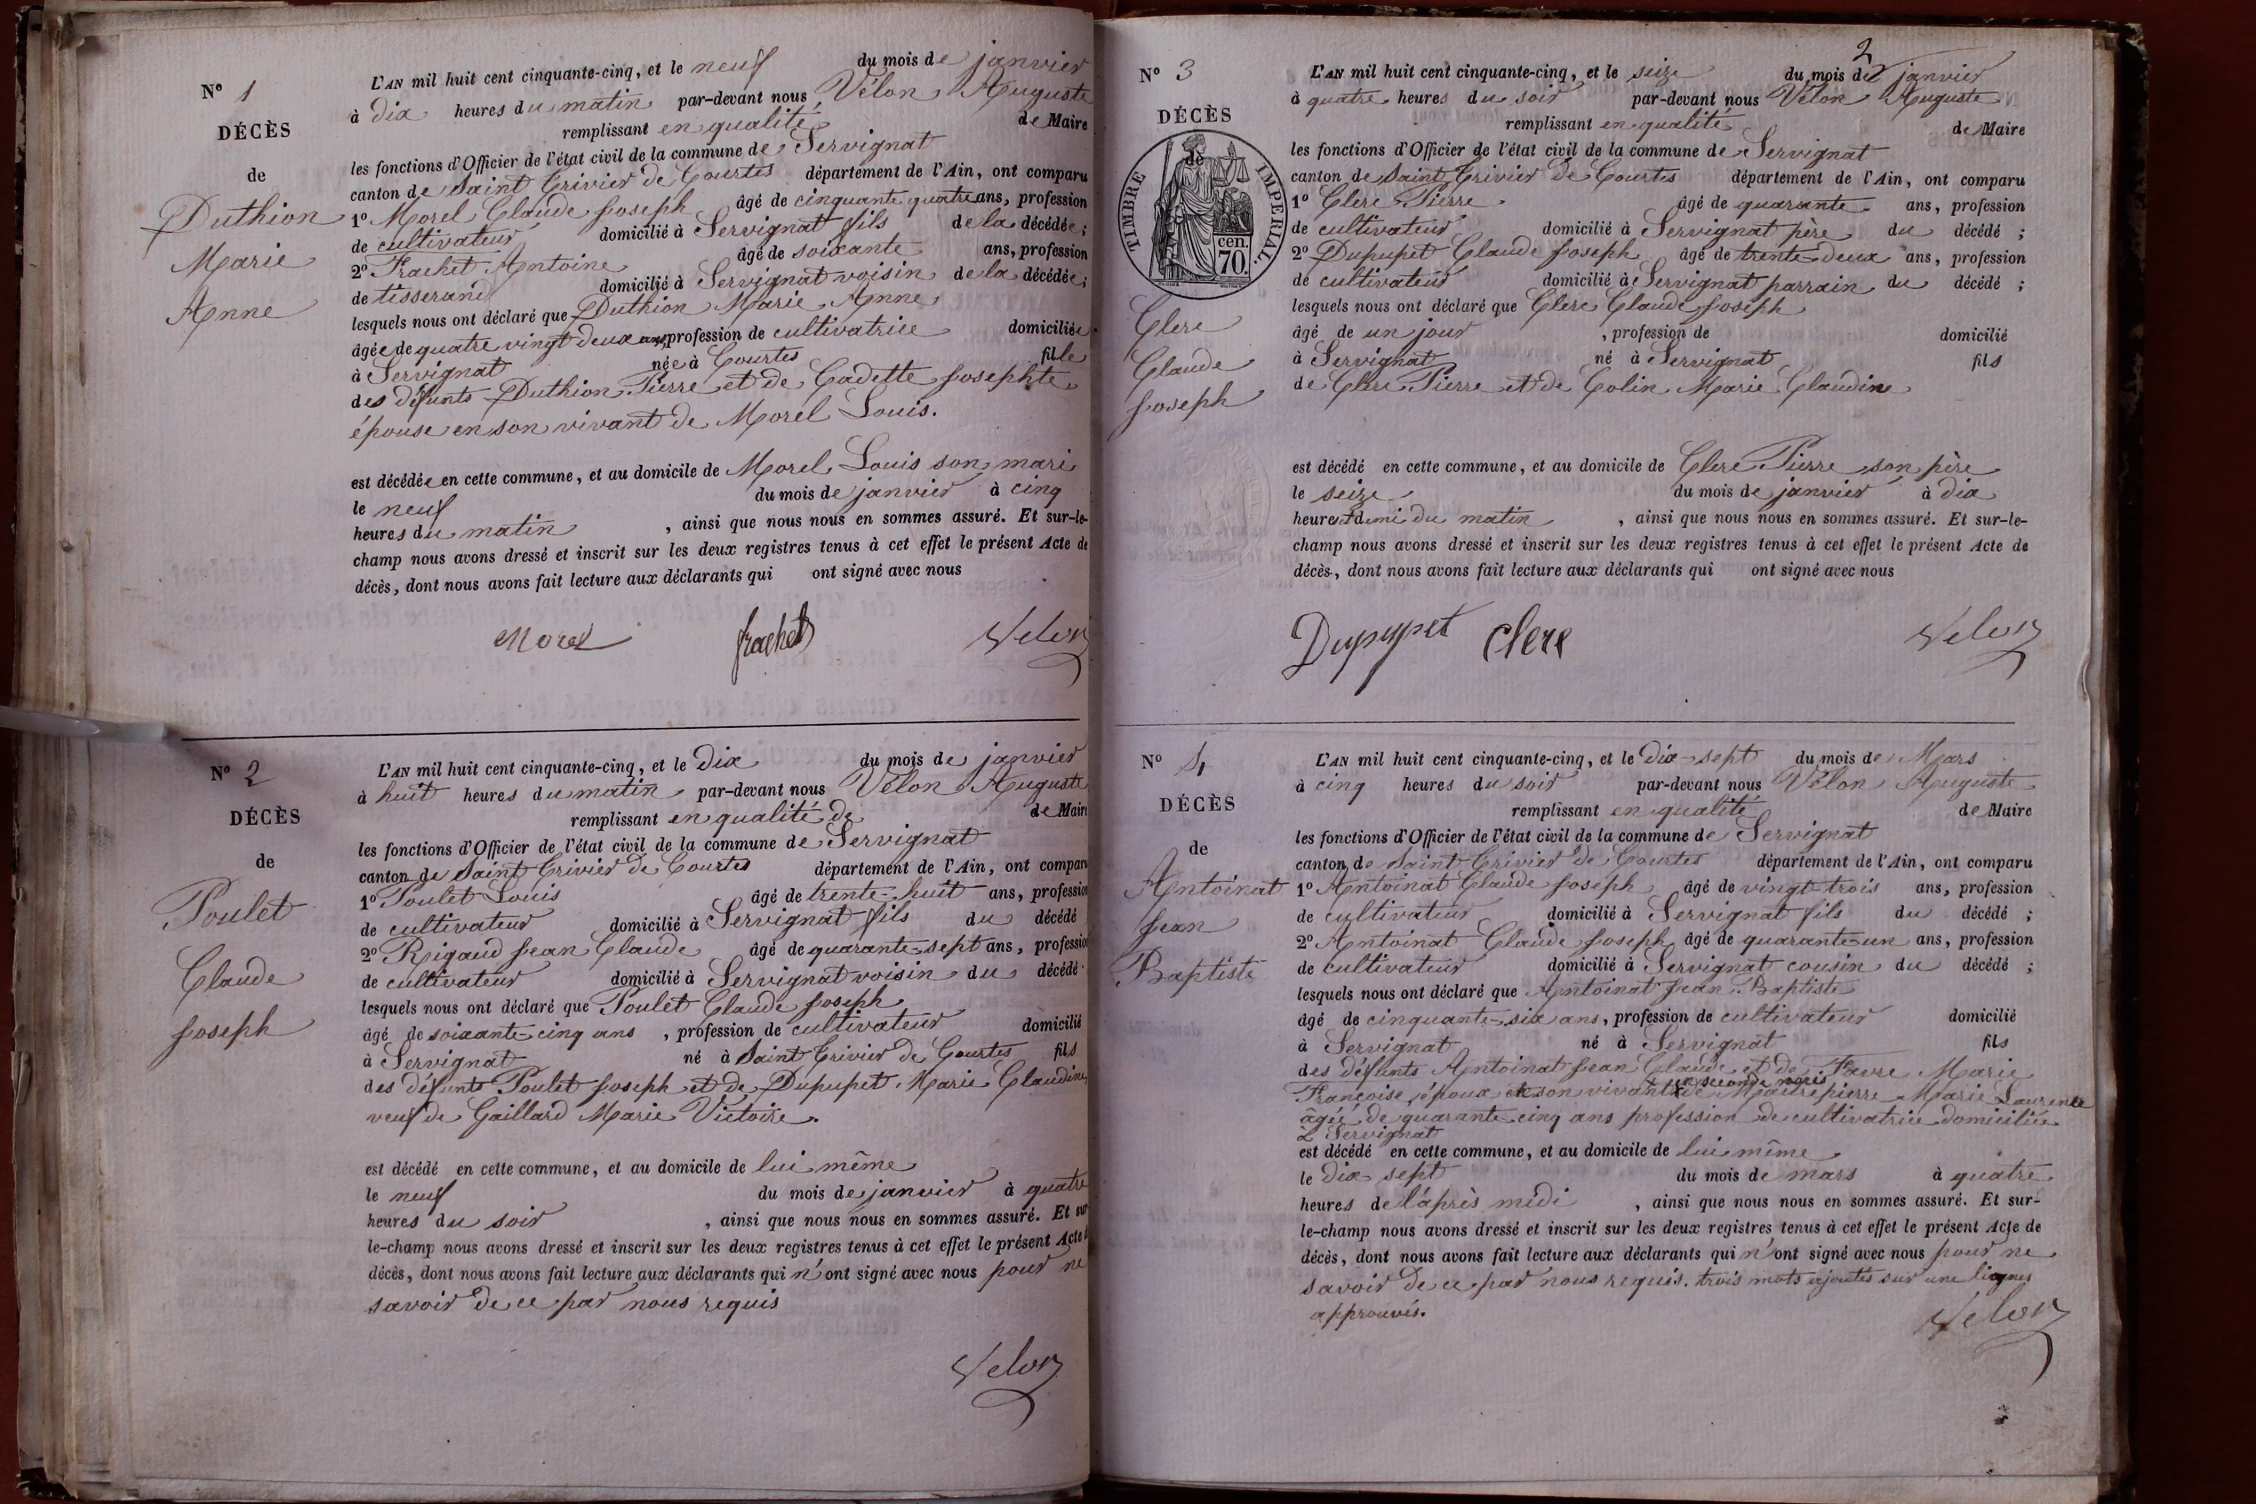 N° 1
DÉCÈS
de
Duthion
Marie
Anne
L'AN mil huit cent cinquante-cinq, et le neuf du mois de janvier
à dix heures du matin par-devant nous Vélon Auguste
remplissant en qualité de Maire
les fonctions d'Officier de l'état civil de la commune de Servignat
canton de Saint Trivier de Courtes département de l'Ain, ont comparu
1° Morel Claude Joseph âgé de cinquante quatre ans, profession
de cultivateur domicilié à Servignat fils de la décédée;
2° Frachet Antoine âgé de soixante ans, profession
de tisserand domicilié à Servignat voisin de la décédée;
lesquels nous ont déclaré que Duthion Marie Anne
âgée de quatre vingt deux ans, profession de cultivatrice domiciliée
à Servignat née à Courtes fille
des défunts Duthion Pierre et de Cadette Josephte
épouse en son vivant de Morel Louis.
est décédée en cette commune, et au domicile de Morel Louis son mari
le neuf du mois de janvier à cinq
heures du matin, ainsi que nous nous en sommes assuré. Et sur-le-
champ nous avons dressé et inscrit sur les deux registres tenus à cet effet le présent Acte de
décès, dont nous avons fait lecture aux déclarants qui ont signé avec nous
Morel frachet Velon
N° 2
DÉCÈS
de
Poulet
Claude
Joseph
L'AN mil huit cent cinquante-cinq, et le Dix du mois de janvier
à huit heures du matin par-devant nous Vélon Auguste
remplissant en qualité de de Maire
les fonctions d'Officier de l'état civil de la commune de Servignat
canton de Saint Trivier de Courtes département de l'Ain, ont comparu
1° Poulet Louis âgé de trente-huit ans, profession
de cultivateur domicilié à Servignat fils du décédé
2° Rigaud Jean Claude âgé de quarante-sept ans, profession
de cultivateur domicilié à Servignat voisin du décédé
lesquels nous ont déclaré que Poulet Claude Joseph
âgé de soixante-cinq ans, profession de cultivateur domicilié
à Servignat né à Saint Trivier de Courtes fils
des défunts Poulet Joseph et de Dupupet Marie Claudine
veuf de Gaillard Marie Victoire.
est décédé en cette commune, et au domicile de lui même
le neuf du mois de janvier à quatre
heures du soir, ainsi que nous nous en sommes assuré. Et sur
le-champ nous avons dressé et inscrit sur les deux registres tenus à cet effet le présent Acte d
décès, dont nous avons fait lecture aux déclarants qui n'ont signé avec nous pour ne
savoir de ce par nous requis
Velon
2
N° 3
DÉCÈS
de
TIMBRE IMPERIAL
70 cen.
Clere
Claude
Joseph
L'AN mil huit cent cinquante-cinq, et le seize du mois de janvier
à quatre heures du soir par-devant nous Vélon Auguste
remplissant en qualité de Maire
les fonctions d'Officier de l'état civil de la commune de Servignat
canton de Saint Trivier de Courtes département de l'Ain, ont comparu
1° Clere Pierre âgé de quarante ans, profession
de cultivateur domicilié à Servignat père du décédé;
2° Dupupet Claude Joseph âgé de trente-deux ans, profession
de cultivateur domicilié à Servignat parrain du décédé;
lesquels nous ont déclaré que Clere Claude Joseph
âgé de un jour, profession de domicilié
à Servignat né à Servignat fils
de Clere Pierre et de Colin Marie Claudine
est décédé en cette commune, et au domicile de Clere Pierre son père
le seize du mois de janvier à dix
heures et demi du matin, ainsi que nous nous en sommes assuré. Et sur-le-
champ nous avons dressé et inscrit sur les deux registres tenus à cet effet le présent Acte de
décès, dont nous avons fait lecture aux déclarants qui ont signé avec nous
Dupupet Clere Velon
N° 4
DÉCÈS
de
Antoinat
Jean
Baptiste
L'AN mil huit cent cinquante-cinq, et le dix-sept du mois de Mars
à cinq heures du soir par-devant nous Vélon Auguste
remplissant en qualité de Maire
les fonctions d'Officier de l'état civil de la commune de Servignat
canton de Saint Trivier de Courtes département de l'Ain, ont comparu
1° Antoinat Claude Joseph âgé de vingt-trois ans, profession
de cultivateur domicilié à Servignat fils du décédé;
2° Antoinat Claude Joseph âgé de quarante-un ans, profession
de cultivateur domicilié à Servignat cousin du décédé;
lesquels nous ont déclaré que Antoinat Jean Baptiste
âgé de cinquante-six ans, profession de cultivateur domicilié
à Servignat né à Servignat fils
des défunts Antoinat Jean Claude et de Favre Marie
en seconde noces
Françoise, époux en son vivant de Maitrepierre Marie Laurence
âgée de quarante-cinq ans profession de cultivatrice domiciliée
à Servignat
est décédé en cette commune, et au domicile de lui même
le dix sept du mois de mars à quatre
heures de l'après midi, ainsi que nous nous en sommes assuré. Et sur-
le-champ nous avons dressé et inscrit sur les deux registres tenus à cet effet le présent Acte de
décès, dont nous avons fait lecture aux déclarants qui n'ont signé avec nous pour ne
savoir de ce par nous requis. trois mots ajoutés sur une lignes
approuvés.
Velon